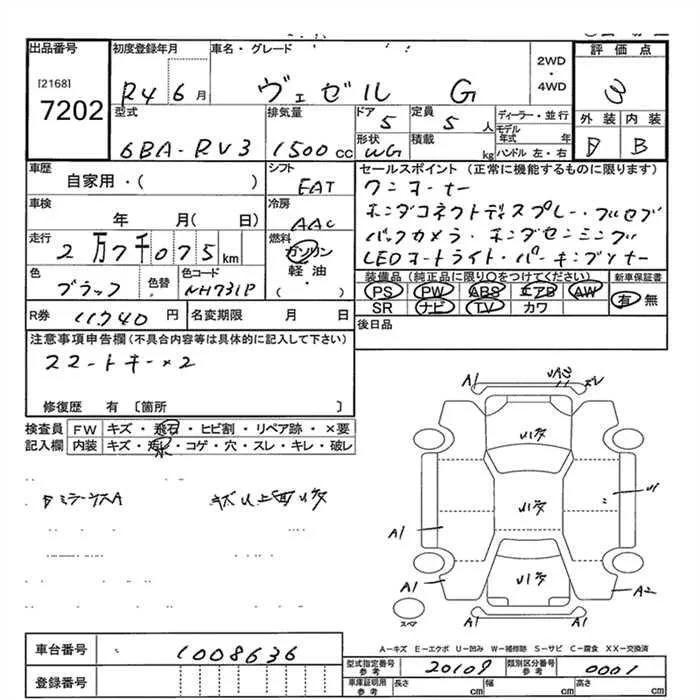 出品番号 初度登録年月 車名・グレード 2WD ・ 4WD 評価点
[2168]
7202 R4 6月 ヴェゼル G 3
型式 排気量 ドア 定員 ディーラー・並行 外装 内装
6BA-RV3 1500cc 5 5人 モデル年式 年 B
形状 積載 ハンドル 左・右
WG kg
車歴 シフト セールスポイント (正常に機能するものに限ります)
自家用・( ) FAT ワンオーナー
車検 冷房 ホンダコネクトディスプレー・フルセグ
年 月( 日) AAC バックカメラ・ホンダセンシング
走行 燃料 LEDヘッドライト・パーキングソナー
2万7千075km ガソリン
軽油
・
( )
色 色替 色コード 装備品(純正品に限り○をつけてください) 新車保証書
ブラック NH731P PS PW ABS エアB AW 有 無
SR ナビ TV カワ
R券 11740円 名変期限 月 日 後日品
注意事項申告欄(不具合内容等は具体的に記入して下さい)
スマートキー×2
修復歴 有 〔箇所 〕
検査員記入欄 FW キズ・飛石・ヒビ割・リペア跡・×要
内装 キズ・汚レ・コゲ・穴・スレ・キレ・破レ
A1
A1
U1
A1
A1
A2
A1
スペア
A-キズ E-エクボ U-凹み W-補修跡 S-サビ C-腐食 XX-交換済
車台番号 1008636
型式指定番号 参考 20109 類別区分番号 参考 0001
登録番号
車庫証明用 参考 長さ cm 幅 cm 高さ cm